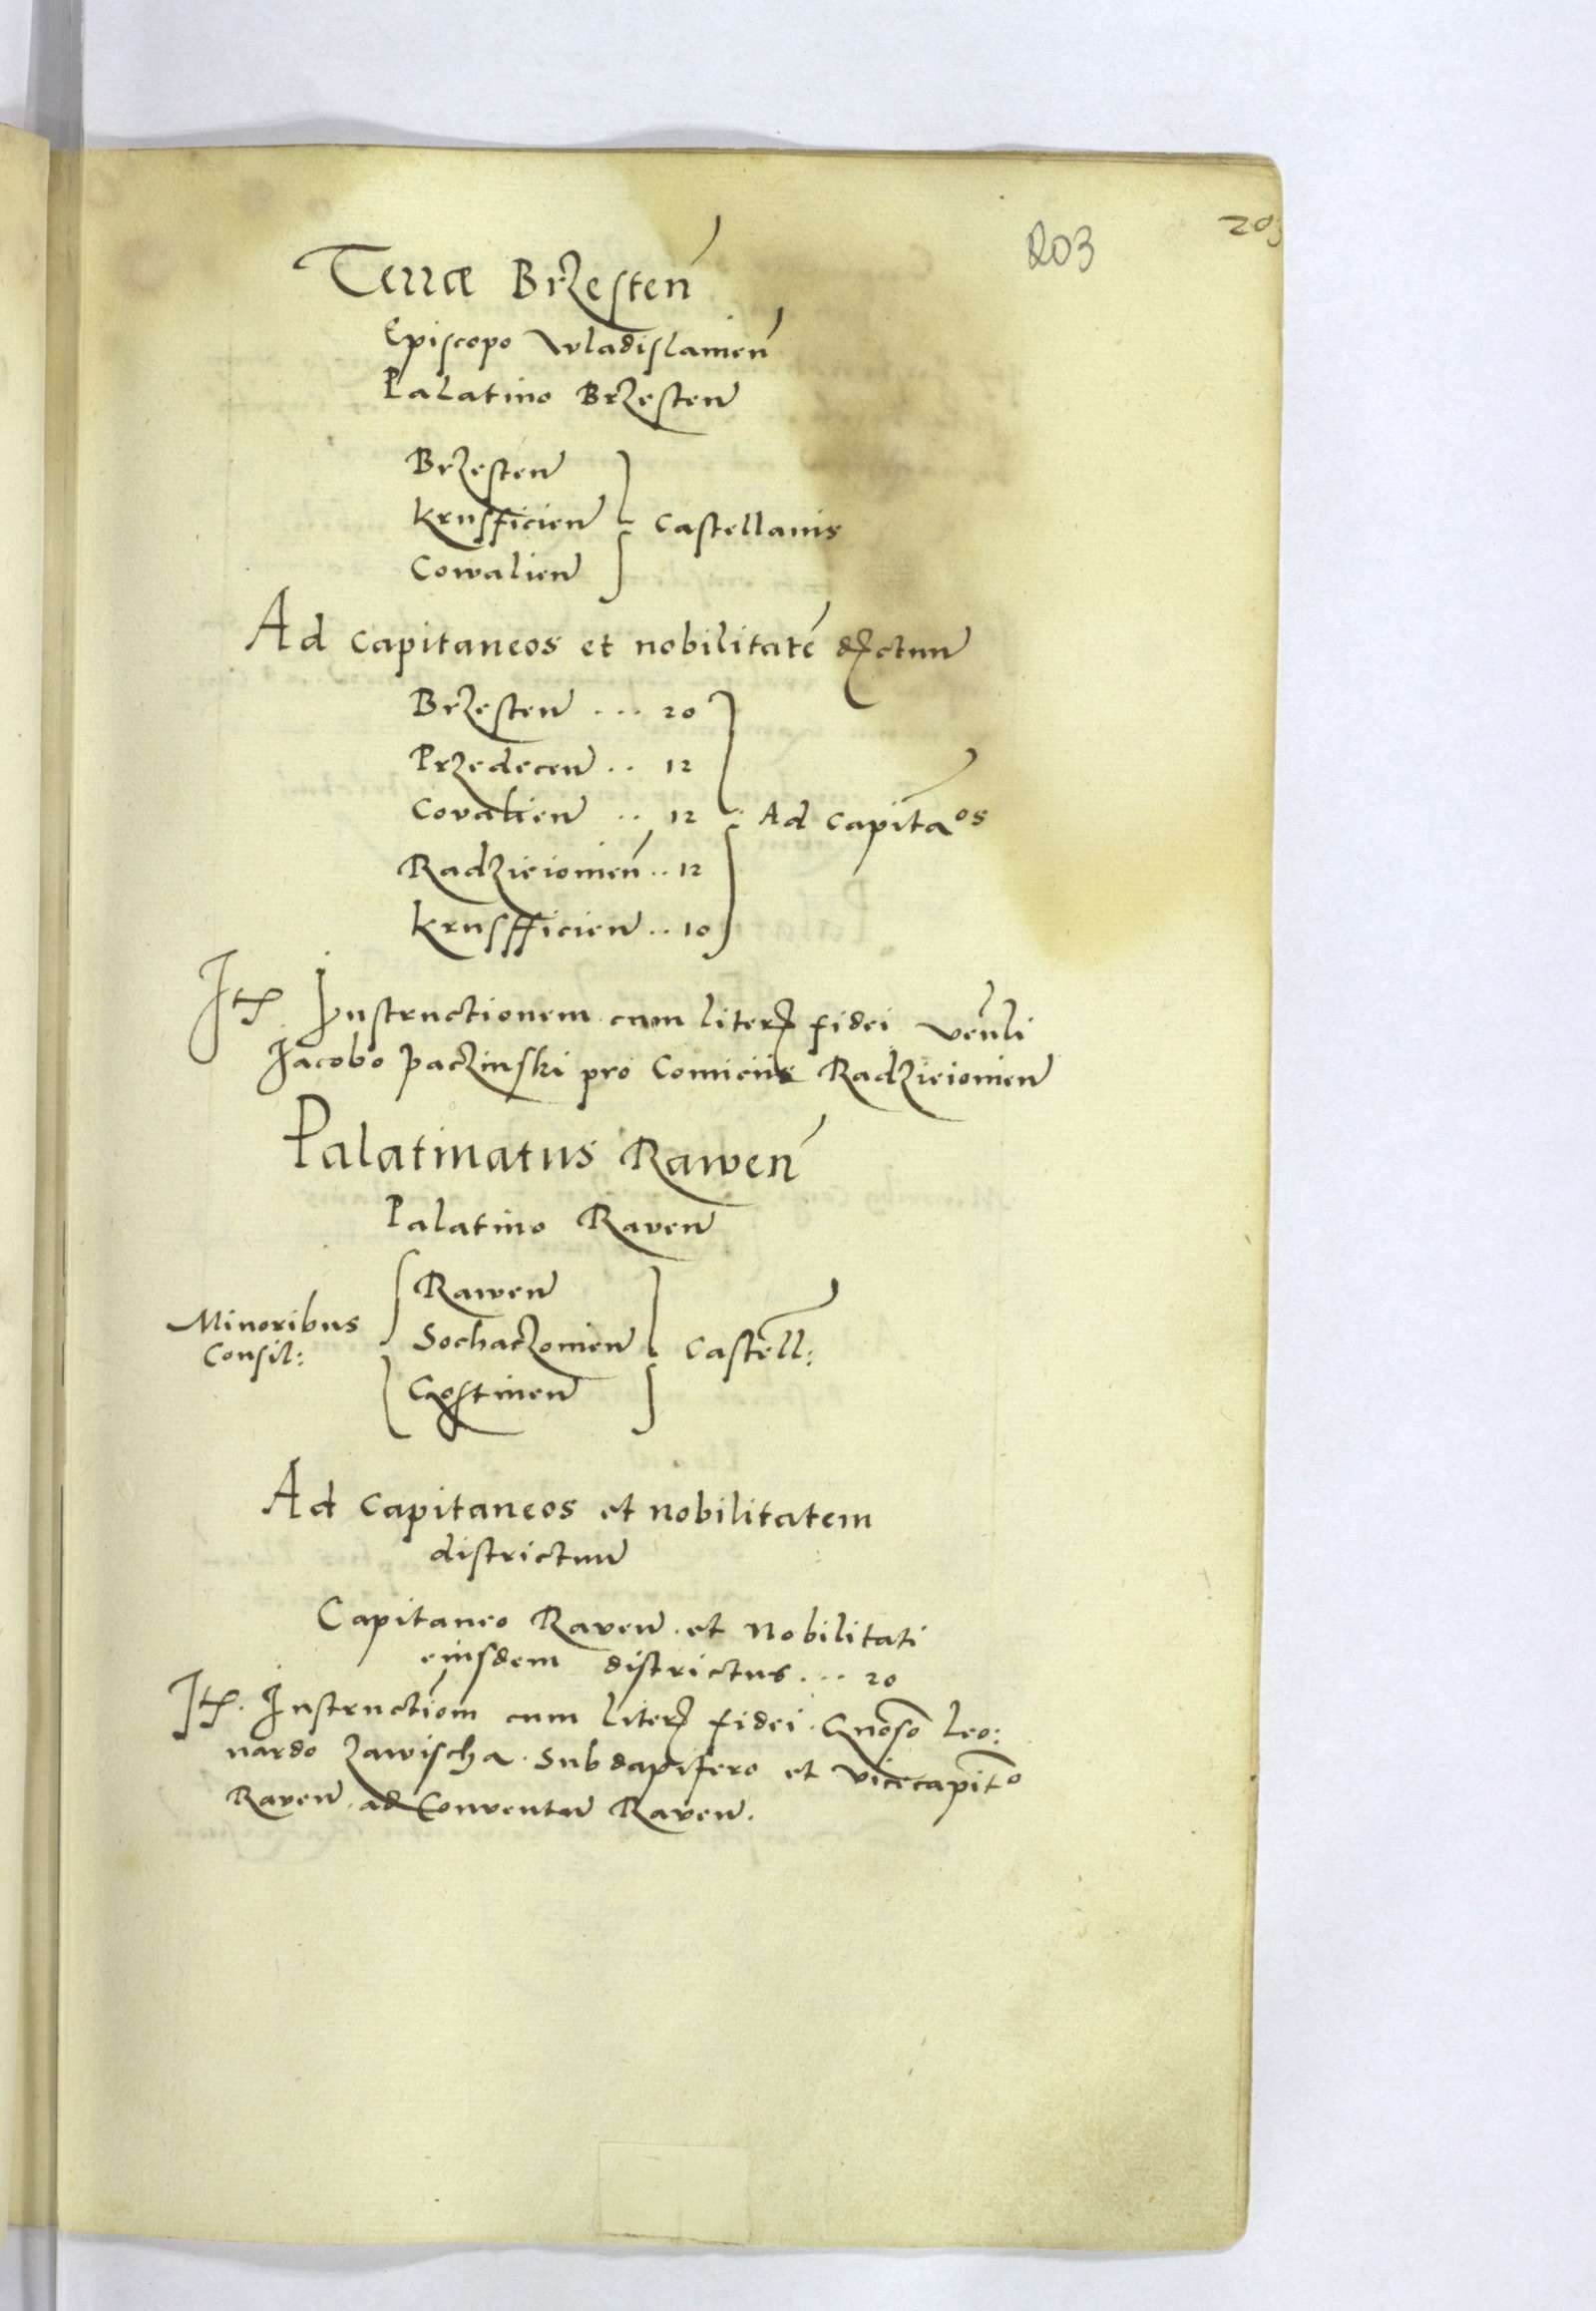 203
203
Terræ Brzesten
Episcopo Wladislavien
Palatino Brzesten
Brzesten
Krusfficien } Castellanis
Cowalien
Ad capitaneos et nobilitatē dictuu
Brzesten ... 20
Przedecen .. 12
Covalien .. 12 } Ad capitaos
Radzieiovien .. 12
Krusfficien .. 10
Jt Instructionem cum liter fidei venli
Jacobo paczinski pro Comiciis Radzieiovien
Palatinatus Rawen
Palatino Raven
Rawen
Minoribus Consil: { Sochaczovien } Castell:
Gostinen
Ad capitaneos et nobilitatem
districtuu
Capitaneo Raven et Nobilitati
eiusdem districtus ... 20
Jt. Instructiom cum liter fidei Gnoso Leo:
nardo Zawischa Subdapifero et vicecapito
Raven ad Conventu Raven.